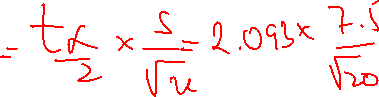 = t α/2 × s/√n = 2.093 × 7.5/√20